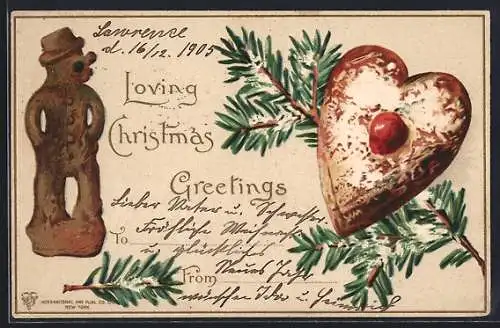 Lawrence
d. 16/12. 1905
Loving
Christmas
Greetings
Lieber Vater u. Schwester
To Fröhliche Weihnacht
u. glückliches
From Neues Jahr
wünschen Ida u. Heinrich
INTERNATIONAL ART PUBL. CO.
NEW YORK.